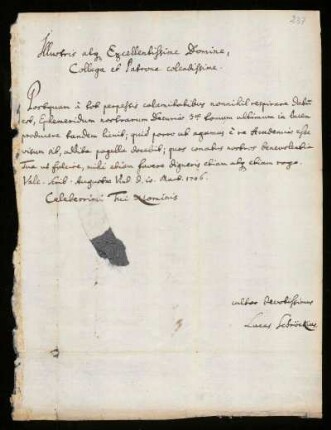 237
Illustris atq Excellentissime Domine,
Collega et Patrone colendissime.
Postquam à tot perpessis calamitatibus nonnihil respirare datum
est, Ephemeridum nostrarum Decuriae 3ae annum in lucem
producere tandem licuit, quid porro ab agamus à re Academiae esse
visum sit, addita pagella docebit; quae conatus nostros benevolentia
Tua ut fovere, mihi etiam favere digneris etiam atq etiam rogo.
Vale. Augustae Vind. d. 1706.
Celeberrimi Tui Nominis
cultor devotissimus
Lucas Schröckius